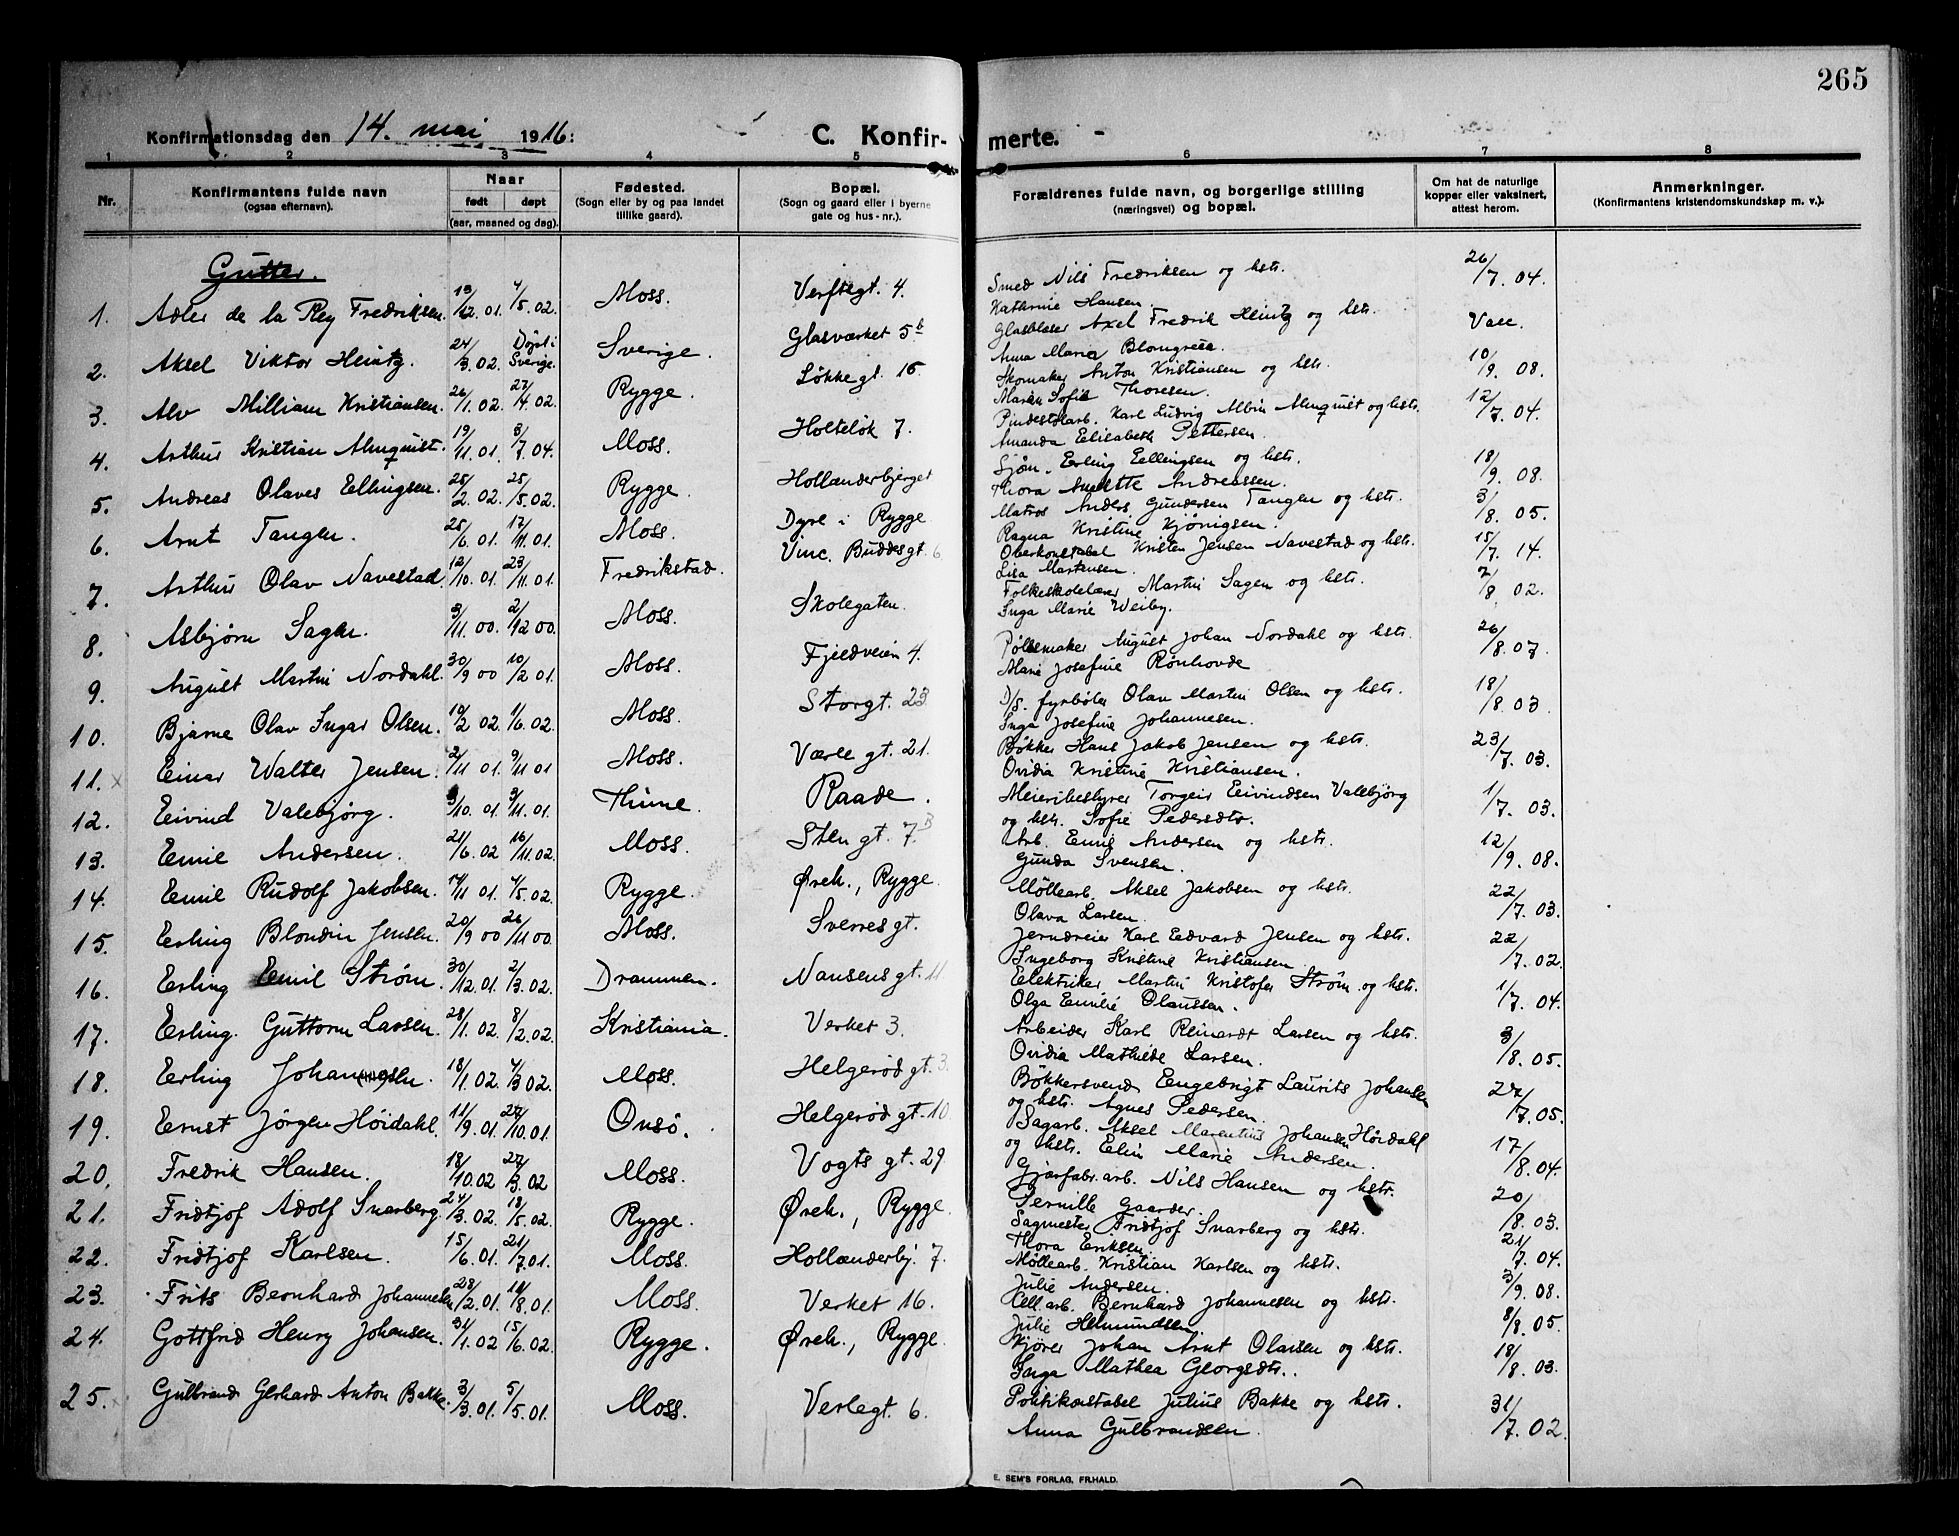 265
Konfirmationsdag den 14. mai 1916:
C. Konfir-
merte.
1 2 3 4 5 6 7 8
Nr.
Konfirmantens fulde navn
(ogsaa efternavn).
Naar
født døpt
(aar, maaned og dag).
Fødested.
(Sogn eller by og paa landet
tillike gaard).
Bopæl.
(Sogn og gaard eller i byerne
gate og hus-nr.).
Forældrenes fulde navn, og borgerlige stilling
(næringsvei) og bopæl.
Om hat de naturlige
kopper eller vaksinert,
attest herom.
Anmerkninger.
(Konfirmantens kristendomskundskap m. v.).
Gutter.
1. Adler de la Rey Fredriksen. 19/12.01. 4/5.02. Moss. Verftsgt. 4. Smed Nils Fredriksen og hstr. 26/7.04.
Kathrine Hansen.
2. Aksel Viktor Heintz. 24/3.02. Døpt i Sverige. Sverige. Glasværket 5b Glasblåser Axel Fredrik Heintz og hstr. Vacc.
Anna Maria Blomgren.
3. Alv William Kristiansen. 26/1.02. 27/4.02. Rygge. Løkkegt. 15. Skomaker Anton Kristiansen og hstr. 10/9.08.
Maren Sofie Thoresen.
4. Arthur Kristian Almquist. 19/11.01. 3/7.04. Moss. Holteløk 7. Pindestolarb. Karl Ludvig Albin Almquist og hstr. 12/7.04.
Amanda Elisabeth Pettersen.
5. Andreas Olaves Ellingsen. 25/2.02. 25/5.02. Rygge. Hollænderbjerget Sjøm. Erling Ellingsen og hstr. 18/9.08.
Thora Anette Andreassen.
6. Arnt Tangen. 25/6.01. 17/11.01. Moss. Dyre i Rygge Matros Anders Gundersen Tangen og hstr. 3/8.05.
Ragna Kristine Kjønigsen.
7. Arthur Olav Navestad. 12/10.01. 23/11.01. Fredrikstad. Vinc. Buddesgt. 6 Oberkonstabel Kristen Jensen Navestad og hstr. 15/7.14.
Lisa Martensen.
8. Asbjørn Sagen. 3/11.00. 2/12.00. Moss. Skolegaten. Folkeskolelærer Martin Sagen og hstr. 7/8.02.
Inga Marie Weiby.
9. August Martin Nordahl. 30/9.00 10/2.01. Moss. Fjeldveien 4. Pølsemaker August Johan Nordahl og hstr. 26/8.07.
Marie Josefine Rønhovde
10. Bjarne Olav Ingar Olsen. 19/2.02. 1/6.02. Moss. Storgt. 23 D/S. fyrbøter Olav Martin Olsen og hstr. 18/8.03
Inga Josefine Johannesen.
11. Einar Walter Jensen. 2/11.01. 9/11.01 Moss. Værlegt. 21. Bøkker Hans Jakob Jensen og hstr. 23/7.03.
Ovidia Kristine Kristiansen.
12. Eivind Valebjørg. 9/10.01. 3/11.01. Thime. Raade. Meieribestyrer Torgeir Eivindsen Valebjørg 1/7.03.
og hstr. Sofie Pedersdtr.
13. Emil Andersen. 21/6.02 16/11.02. Moss. Stengt. 7B Arb. Emil Andersen og hstr. 12/9.08.
Gunda Svensen.
14. Emil Rudolf Jakobsen. 17/11.01. 4/5.02. Rygge. Øreh., Rygge. Møllearb. Aksel Jakobsen og hstr. 22/7.03.
Olava Larsen.
15. Erling Blondin Jensen. 20/9.00 26/11.00. Moss. Sverresgt. Jerndreier Karl Edvard Jensen og hstr. 22/7.02.
Ingeborg Kristine Kristiansen.
16. Erling Emil Strøm. 30/12.01. 2/3.02. Drammen. Nansensgt. 11. Elektriker Martin Kristofer Strøm og hstr. 1/7.04.
Olga Emilie Olaussen.
17. Erling Guttorm Larsen. 28/1.02. 8/2.02. Kristiania. Verket 3. Arbeider Karl Reinardt Larsen og hstr. 3/8.05.
Ovidia Mathilde Larsen.
18. Erling Johansen. 18/1.02. 4/3.02. Moss. Helgerødgt. 3. Bøkkersvend Engebrigt Laurits Johansen 27/7.05.
og hstr. Agnes Pedersen.
19. Ernst Jørgen Höidahl. 11/9.01. 27/10.01. Onsö. Helgerødgt. 10 Sagarb. Aksel Marentius Johansen Höidahl 17/8.04.
og hstr. Elin Marie Andersen.
20. Fredrik Hansen. 18/10.02 27/3.02 Moss. Vogtsgt. 29 Gjærfabr.arb. Nils Hansen og hstr. 20/8.03.
Pernille Gaarder.
21. Fridtjof Adolf Snarberg. 24/3.02. 18/5.02. Rygge. Øreh., Rygge. Sagmester Fridtjof Snarberg og hstr. 21/7.04.
Thora Eriksen.
22. Fridtjof Karlsen. 15/6.01. 21/7.01. Moss. Hollænderbj. 7. Møllearb. Kristian Karlsen og hstr. 3/9.08.
Julie Andersen.
23. Frits Bernhard Johannesen 28/2.01. 11/8.01. Moss. Verket 16. Cell.arb. Bernhard Johannesen og hstr. 8/8.05.
Julie Helmundsen
24. Gottfrid Henry Johansen. 31/1.02 15/6.02. Rygge. Øreh., Rygge. Kjører Johan Arnt Olavsen og hstr. 18/8.03.
Inga Mathea Georgsdtr.
25. Gulbrand Gerhard Anton Bakke. 3/3.01. 5/5.01. Moss. Verlegt. 6. Politikonstabel Julius Bakke og hstr. 31/7.02.
Anna Gulbrandsen.
E. SEM'S FORLAG, FR.HALD.